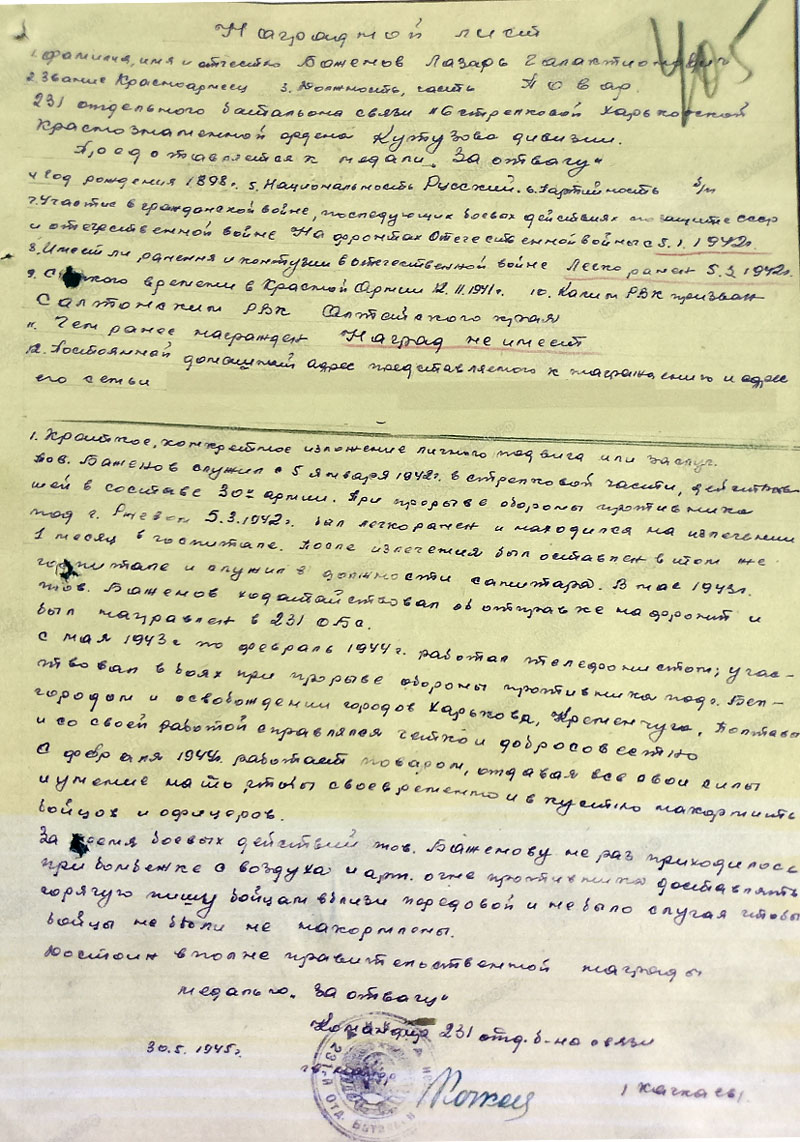 Наградной лист
405
1. Фамилия, имя и отчество Баженов Лазарь Галактионович
2. Звание Красноармеец 3. Должность, часть Повар.
231 отдельного батальона связи 116 стрелковой Харьковской
Краснознаменной ордена Кутузова дивизии.
Представляется к медали „За отвагу"
4. Год рождения 1898г. 5. Национальность Русский. 6. Партийность б/п
7. Участие в гражданской войне, последующих боевых действиях по защите СССР
и отечественной войне На фронтах Отечественной войны с 5.1.1942г.
8. Имеет ли ранения и контузии в отечественной войне Легко ранен 5.3.1942г.
9. С какого времени в Красной Армии 12.11.1941г. 10. Каким РВК призван
Салтонским РВК Алтайского края
11. Чем ранее награжден Наград не имеет
12. Постоянной домашний адрес представляемого к награждению и адрес
его семьи
1. Краткое, конкретное изложение личного подвига или заслуг.
тов. Баженов служил с 5 января 1942г. в стрелковой части, действовав-
шей в составе 30й армии. При прорыве обороны противника
под г. Ржевом 5.3.1942г. был легкоранен и находился на излечении
1 месяц в госпитале. После излечения был оставлен в том же
госпитале и служил в должности санитара. В мае 1943г.
тов. Баженов ходатайствовал об отправке на фронт и
был направлен в 231 ОБС.
С мая 1943г по февраль 1944г. работал телефонистом; учас-
твовал в боях при прорыве обороны противника под г. Бел-
городом и освобождении городов Харькова, Кременчуга, Полтава
и со своей работой справлялся четко и добросовестно
С февраля 1944г. работает поваром, отдавая все свои силы
и умение на то чтобы своевременно и вкустно накормить
бойцов и офицеров.
За время боевых действий тов. Баженову не раз приходилось
при бомбежке с воздуха и арт. огне противника доставлять
горячую пищу бойцам вблизи передовой и не было случая чтобы
бойцы не были не накормлены.
Достоин вполне правительственной награды
медалью „За отвагу"
Командир 231 отд. б-на связи
30.5.1945г.
231-й ОТД. БАТАЛЬОН
/ Качкаев /